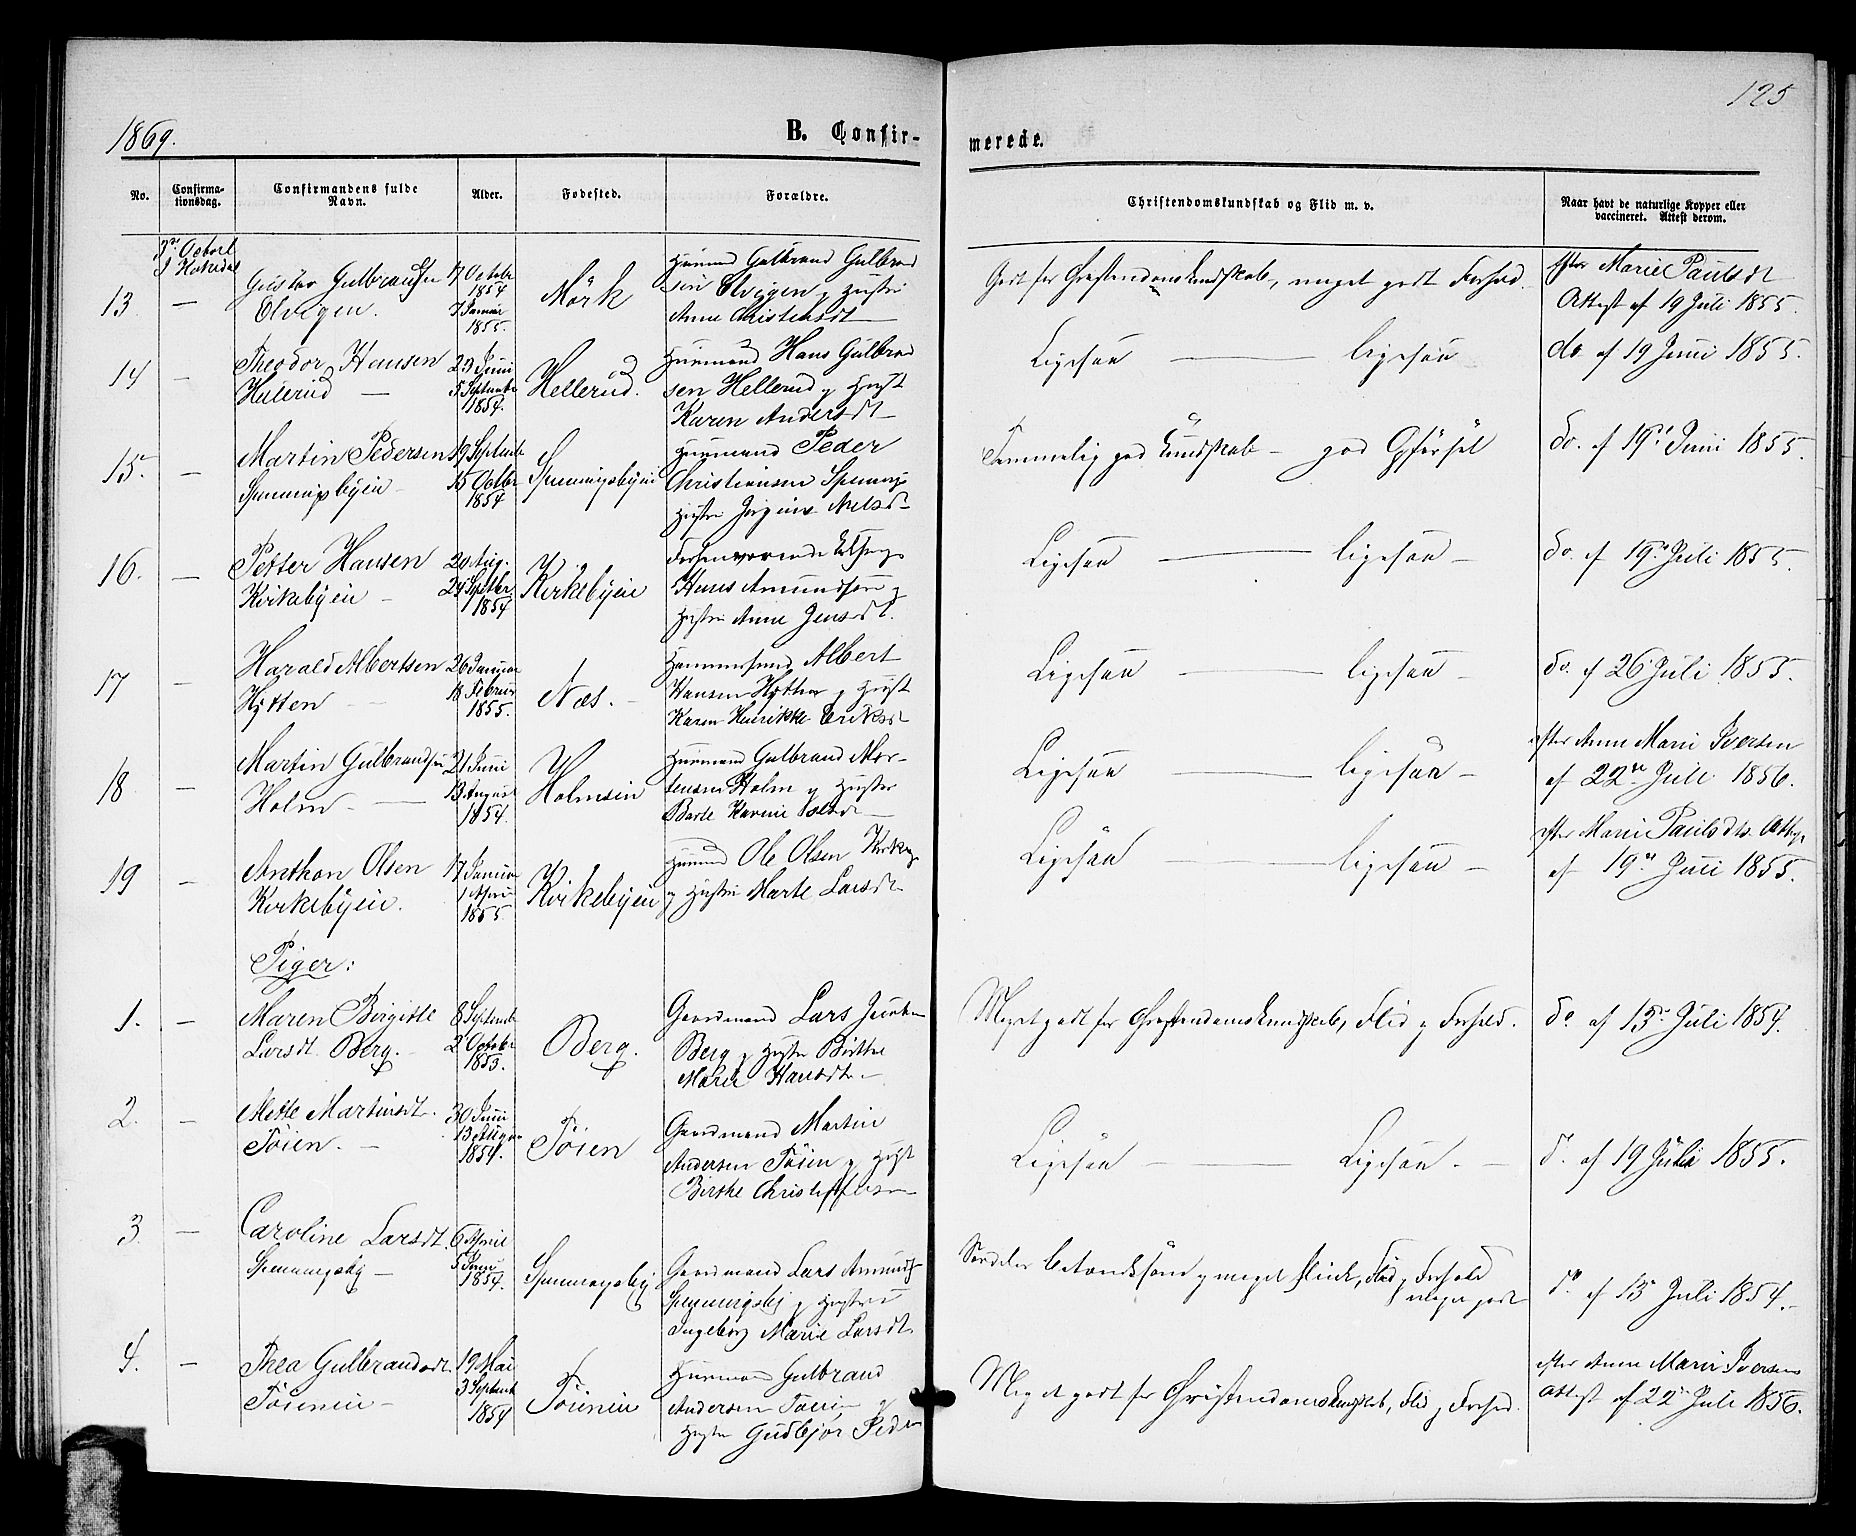 125
1869.
B. Confir-
merede.
No.
Confirma-
tionsdag.
Confirmandens fulde
Navn.
Alder.
Fødested.
Forældre.
Christendomskundskab og Flid m. v.
Naar havt de naturlige Kopper eller
vaccineret. Attest derom.
13
—
Gulbrandsen
Elvigen.
17 Octobr
1854
7 Januar
1855.
Mörk
Huusmand Gulbrand Gulbrand
sen Elvigen og Hustru
Anne Christensdt
Godt for Christendomskundskab, meget godt Forhold.
efter Marie Paulsdt
Attest af 19 Juli 1855.
14
—
Theodor Hansen
Hellerud —
23 Juni
5 Septembr
1854.
Hellerud.
Huusmand Hans Gulbrand
sen Hellerud og Hust
Karen Andersdt
Ligesaa — ligesaa
do. af 19 Juni 1855.
15.
—
Martin Pedersen
Spenningsbyen
19 Septembr
15 Octbr
1854
Spenningsbyen
Huusmand Peder
Christiansen Spennings
Hustru Nielsd
Temmelig god Kundskab — god Opförsel
Do. af 19de Juni 1855.
16.
—
Petter Hansen
Kirkebyen —
20 Aug.
24 Septbr.
1854
Kirkebyen
Forhenværende
Hans Amundsen og
Hustru Anne Jensdt.
Ligesaa — ligesaa —
Do. af 19de Juli 1855.
17
—
Harald Albertsen
Hytten —
26 Januar
18 Februar
1855.
Næs. —
Albert
Hansen Hytten og Hust
Karen Henrikke Eriksd
Ligesaa — ligesaa —
Do. af 26 Juli 1855.
18
—
Martin Gulbrandsen
Holm — —
21 Juni
13 August
1854.
Holmsen
Huusmand Gulbrand Mor-
tensen Holm og Hustru
Karine
Ligesaa — ligesaa —
efter Anne Marie Iversen
af 22de Juli 1856.
19
—
Anthon Olsen
Kirkebyen.
17 Januar
1 April
1855.
Kirkebyen
Huusmd Ole Olsen Kirkeby
og Hustru Marte Larsdt
Ligesaa — ligesaa —
efter Marie Paulsdts Attest
af 19de Juli 1855.
Piger:
1.
—
Maren Birgitte
Larsdt. Berg. —
8 Septembr
2 Octobr
1853.
Berg.
Gaardmand Lars
Berg og Hustru Birthe
Marie Hansdt —
Meget godt for Christendomskundskab, Flid og Forhold.
Do af 13de Juli 1854.
2.
—
Mette Martinsdt.
Töien. —
30 Juni
13 August
1854.
Töien
Gaardmand Martin
Andersen Töien og Hust
Birthe Christoffersen
Ligesaa — Ligesaa. —
Do. af 19 Juli 1855.
3.
—
Caroline Larsdt.
Spenningsby —
6 April
5 Juni
1854.
Spenningsby
Gaardmand Lars Amunds
Spenningsby og Hustru
Ingeborg Marie Larsdt
Særdeles og meget flink, Flid og Forhold
meget godt
Do. af 13 Juli 1854. —
4.
—
Thea Gulbrandsdt.
Töienen —
19 Mai
3 Septemb
1854
Töienen
Huusmand Gulbrand
Andersen Töien — og
Hustru Gudbjör Peder
Meget godt for Christendomskundskab, Flid og Forhold.
efter Anne Marie Iversens
Attest af 22de Juli 1856.